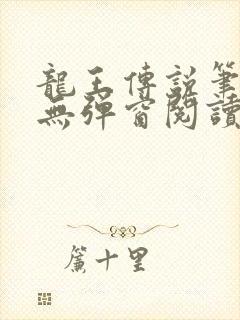 龍王傳說筆
無彈窗閱讀
簾十里